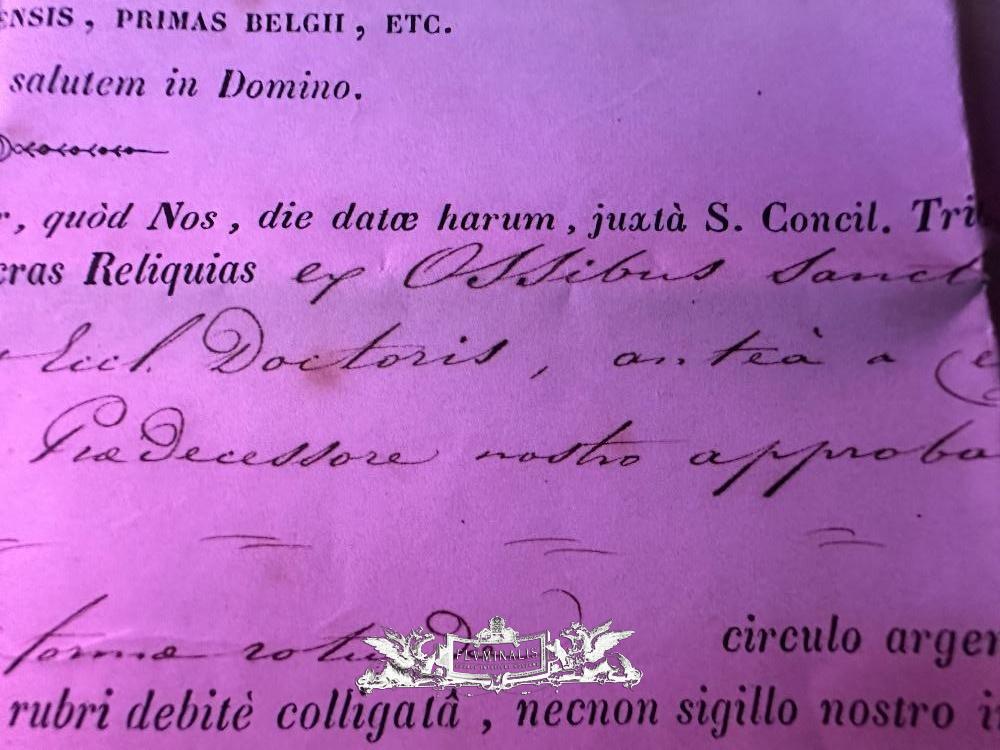 ENSIS, PRIMAS BELGII, ETC.
salutem in Domino.
quòd Nos, die datæ harum, juxtà S. Concil. Tri
cras Reliquias ex Ossibus Sanct
Eccl. Doctoris, anteà a
Prædecessore nostro approba
forma rotunda circulo argen
FLVMINALIS
rubri debitè colligatâ, necnon sigillo nostro i